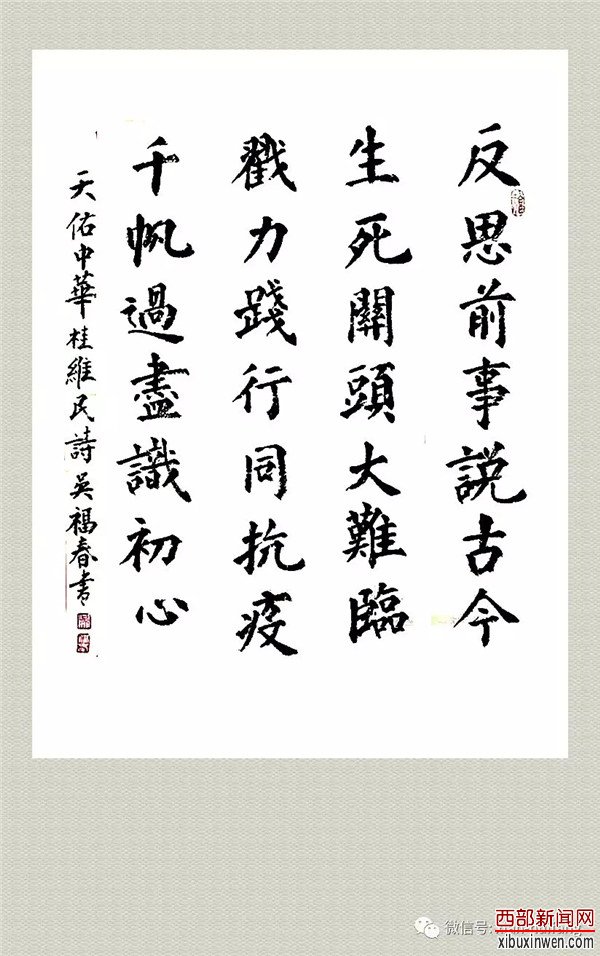 反思前事説古今
生死關頭大難臨
戮力踐行同抗疫
千帆過盡識初心
天佑中華桂維民詩吴福春書
微信号:
西部新闻网
xibuxinwen.com